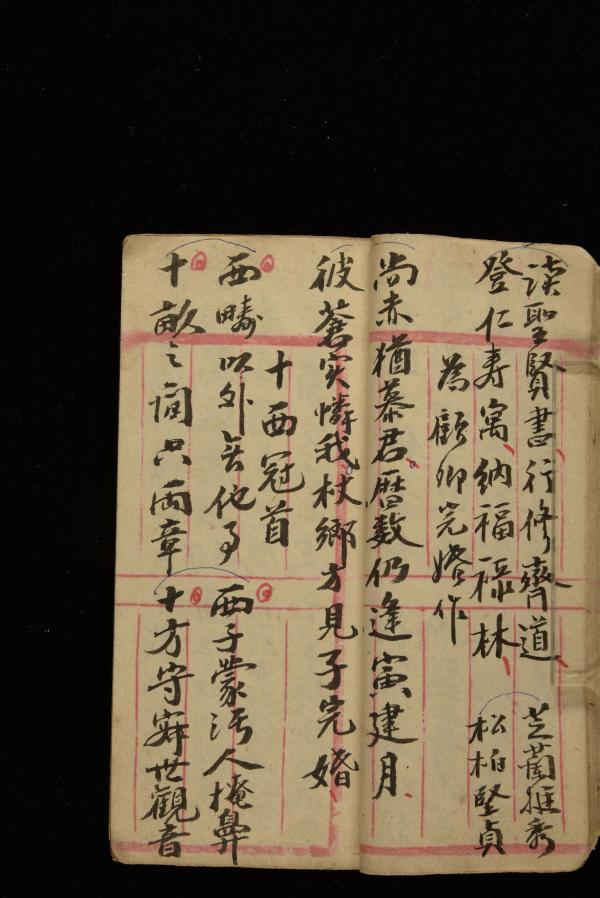 談聖賢書行修齊道
登仁寿寓納福祿林
芝蘭挺秀
松柏堅貞
為顧卿完婚作
尚未猶慕君曆数仍逢寅建月
彼蒼实憐我杖鄉方見子完婚
十西冠首
西疇以外無他事
十畝之間只両章
西子蒙活人掩鼻
十方守寂世觀音